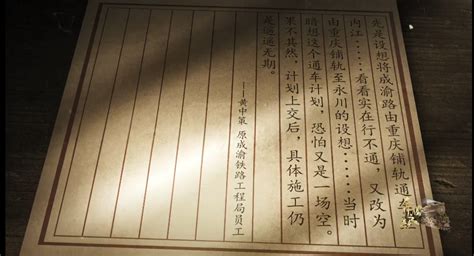 先是设想将成渝路由重庆铺轨通车
内江……看看实在行不通，又改为
由重庆铺轨至永川的设想……当时
暗想这个通车计划，恐怕又是一场空。
果不其然，计划上交后，具体施工仍
是遥遥无期。
——黄中策 原成渝铁路工程局员工